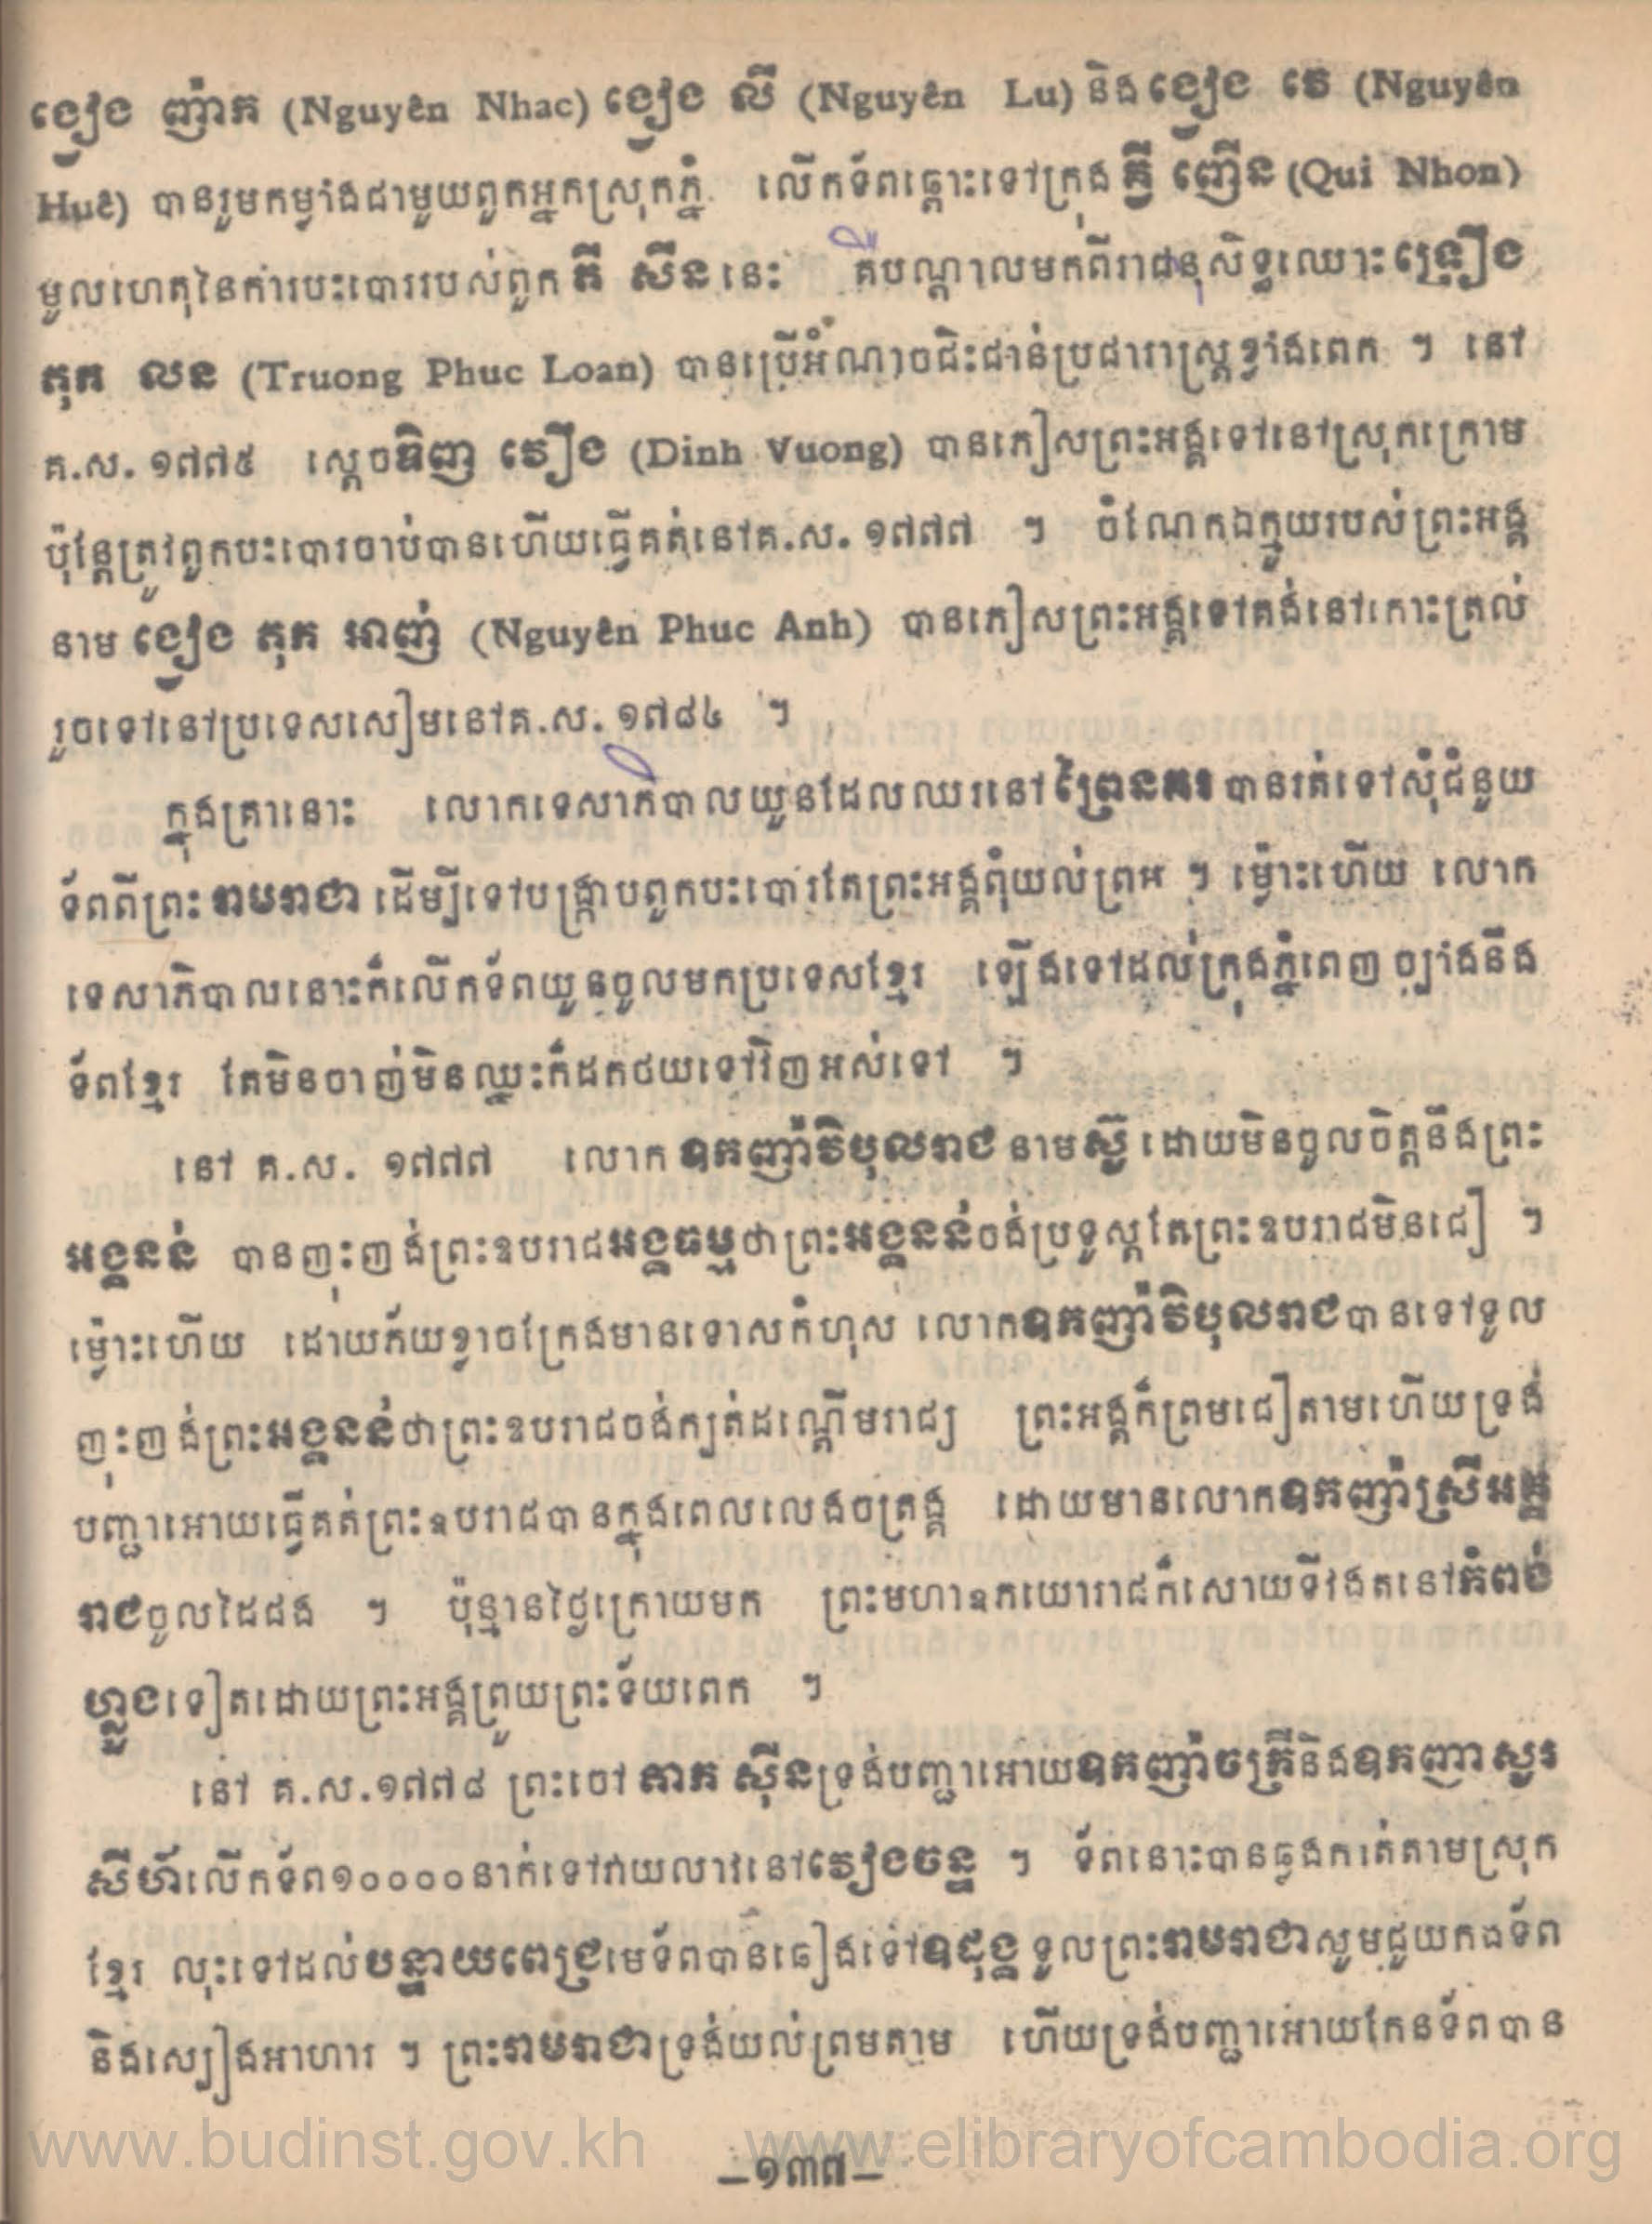 ង្វៀង ញ៉ាក (Nguyên Nhac) ង្វៀង លី (Nguyên Lu) និងង្វៀង វេ (Nguyên
Huê) បានរួមកម្លាំងជាមួយពួកអ្នកស្រុកភ្នំ លើកទ័ពឆ្ពោះទៅក្រុងគ្វី ញ៉ើន (Qui Nhon)
មូលហេតុនៃការបះបោររបស់ពួក តី សឺន នេះ គឺបណ្តាលមកពីរាជានុសិទ្ធឈោះ ទ្រឿង
តុក លន (Truong Phuc Loan) បានប្រើអំណាចជិះជាន់ប្រជារាស្ត្រខ្លាំងពេក ។ នៅ
គ.ស. ១៧៧៥ ស្តេចឌិញ វឿង (Dinh Vuong) បានភៀសព្រះអង្គទៅនៅស្រុកក្រោម
ប៉ុន្តែត្រូវពួកបះបោរចាប់បានហើយធ្វើគត់នៅគ.ស. ១៧៧៧ ។ ចំណែកឯក្មួយរបស់ព្រះអង្គ
នាម ង្វៀង តុក អាញ់ (Nguyên Phuc Anh) បានភៀសព្រះអង្គទៅគង់នៅកោះត្រល់
រួចទៅនៅប្រទេសសៀមនៅគ.ស. ១៧៨៤ ។
ក្នុងគ្រានោះ លោកទេសាភិបាលយួនដែលឈរនៅ ព្រៃនគរ បានរត់ទៅសុំជំនួយ
ទ័ពពីព្រះ រាមរាជា ដើម្បីទៅបង្ក្រាបពួកបះបោរតែព្រះអង្គពុំយល់ព្រម ។ ម្ល៉ោះហើយ លោក
ទេសាភិបាលនោះក៏លើកទ័ពយួនចូលមកប្រទេសខ្មែរ ឡើងទៅដល់ក្រុងភ្នំពេញ ច្បាំងនឹង
ទ័ពខ្មែរ តែមិនចាញ់មិនឈ្នះក៏ដកថយទៅវិញអស់ទៅ ។
នៅ គ.ស. ១៧៧៧ លោក ឧកញ៉ាវិបុលរាជ នាមស៊ូ ដោយមិនចូលចិត្តនឹងព្រះ
អង្គនន់ បានញុះញង់ព្រះឧបរាជអង្គធម្មថាព្រះអង្គនន់ចង់ប្រទូស្តតែព្រះឧបរាជមិនជឿ ។
ម្ល៉ោះហើយ ដោយភ័យខ្លាចក្រែងមានទោសកំហុស លោកឧកញ៉ាវិបុលរាជបានទៅទូល
ញុះញង់ព្រះអង្គនន់ថាព្រះឧបរាជចង់ក្បត់ដណ្តើមរាជ្យ ព្រះអង្គក៏ព្រមជឿតាមហើយទ្រង់
បញ្ជាអោយធ្វើគត់ព្រះឧបរាជបានក្នុងពេលលេងចត្រង្គ ដោយមានលោកឧកញ៉ាស្រីអគ្គ
រាជចូលដៃផង ។ ប៉ុន្មានថ្ងៃក្រោយមក ព្រះមហាឧភយោរាជក៏សោយទីវង្គតនៅកំពង់
ហ្លួងទៀតដោយព្រះអង្គព្រួយព្រះទ័យពេក ។
នៅ គ.ស.១៧៧៨ ព្រះចៅ តាក ស៊ីនទ្រង់បញ្ជាអោយឧកញ៉ាចក្រីនិងឧកញ៉ាសួរ
សីហ៍លើកទ័ព១០០០០នាក់ទៅវាយលាវនៅវៀងចន្ទ ។ ទ័ពនោះបានឆ្លងកាត់តាមស្រុក
ខ្មែរ លុះទៅដល់បន្ទាយពេជ្រមេទ័ពបានចៀងទៅឧដុង្គ ទូលព្រះរាមរាជាសូមជួយកងទ័ព
និងស្បៀងអាហារ ។ ព្រះរាមរាជាទ្រង់យល់ព្រមតាម ហើយទ្រង់បញ្ជាអោយកែនទ័ពបាន
www.budinst.gov.kh www.elibraryofcambodia.org
—១៣៧—